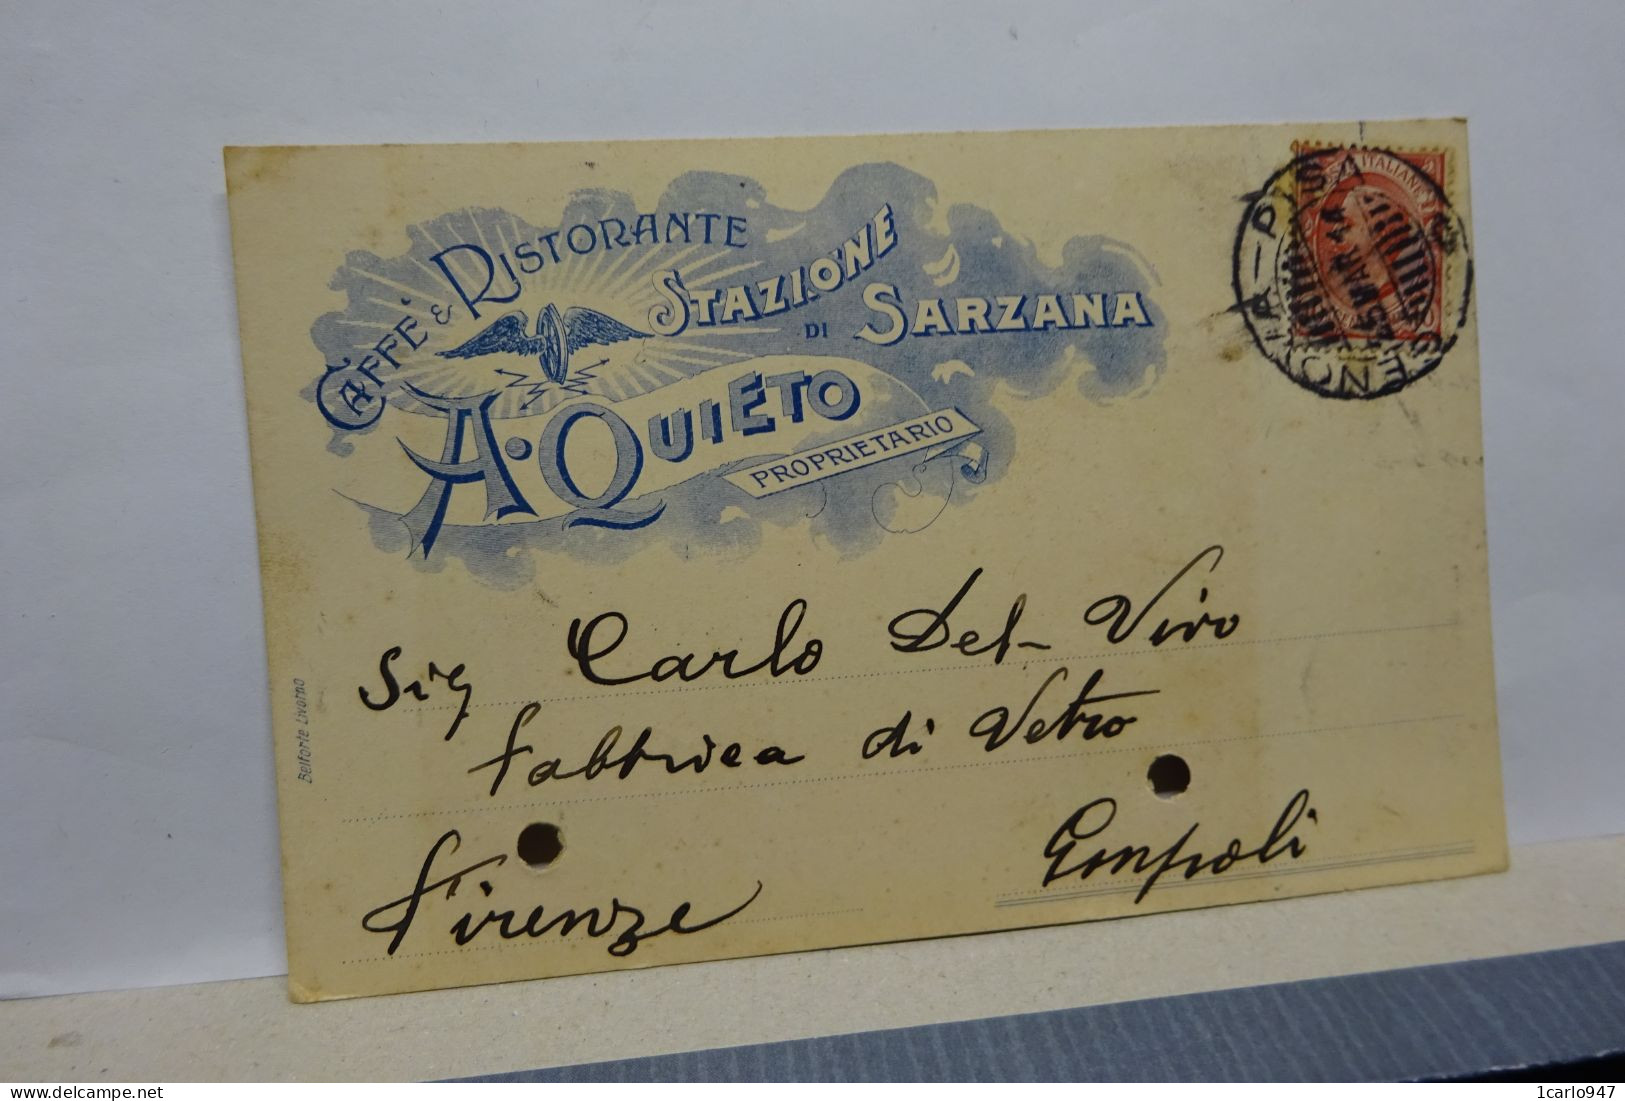 CAFFÈ & RISTORANTE
STAZIONE
DI SARZANA
A. QUIETO
PROPRIETARIO
POSTE ITALIANE
GENOVA - PISA
15 MAR 14
Sig Carlo Del Vivo
fabbrica di Vetro
Empoli
Firenze
Belforte Livorno
1carlo947